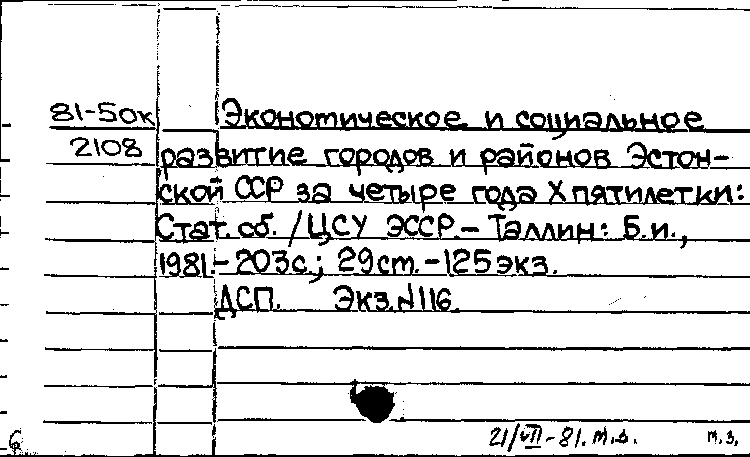 81-50к Экономическое и социальное
2108 развитие городов и районов Эстон-
ской ССР за четыре года X пятилетки:
Стат. сб. / ЦСУ ЭССР. - Таллин: Б.и.,
1981. - 203с.; 29см. - 125экз.
ДСП. Экз.№116.
21/VII-81. м.з. м.з.